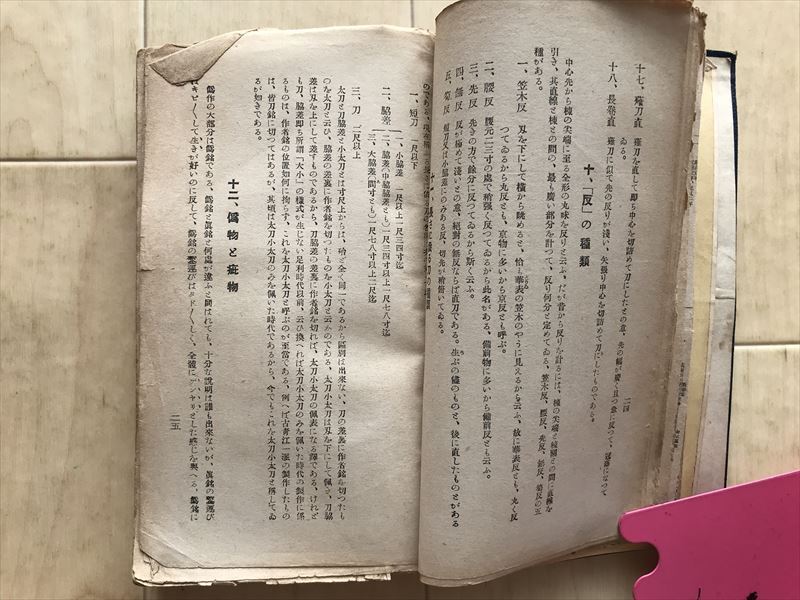 十七、薙刀直　薙刀を直して卽ち中心を切詰めて刀にしたとの意、先の幅が廣く且つ急に反つて、冠落になつて
ゐる。
十八、長卷直　薙刀に似て先の反りが淺い、矢張り中心を切詰めて刀にしたものである。
二四
十、「反」の種類
中心先から棟の尖端に至る全形の丸味を反りと云ふ、だが昔から反りを計るには、棟の尖端と棟區との間に直線を
引き、其直線と棟との間の、最も廣い部分を計つて、反り何分と定めてゐる、笠木反、腰反、先反、無反、菊反の五
種がある。
一、笠木反　刄を下にして橫から眺めると、恰も華表の笠木のやうに見えるから云ふ、故に華表反とも、丸く反
つてゐるから丸反とも、京物に多いから京反とも呼ぶ。
二、腰反　腰元二三寸の處で稍强く反つてゐるから此名がある、備前物に多いから備前反とも云ふ。
三、先反　先きの方で餘分に反つてゐるから斯く云ふ。
四、無反　反が極めて淺いとの意、絕對の無反ならば直刀である。生ぶの儘のものと、後に直したものとがある
五、菊反　短刀又は小脇差にのみある反、切先が稍俯いてゐる。
一、短刀　一尺以下
二、脇差
一、小脇差　一尺以上一尺三四寸迄
二、中脇差（中脇差とも）一尺三四寸以上一尺七八寸迄
三、大脇差（間寸とも）一尺七八寸以上二尺迄
三、刀　二尺以上
太刀と刀脇差と小太刀とは寸尺上からは、殆ど全く同一であるから區別は出來ない、刀の差裏に作者銘を切つたも
のを太刀と云ひ、脇差の差裏に作者銘を切つたものを小太刀と云ふのである、太刀小太刀は刄を下にして佩き、刀脇
差は刄を上にして差すものであるから、刀脇差の差裏に作者銘を切れば、太刀小太刀の佩表になる譯である、けれど
も刀、脇差卽ち所謂「大小」の樣式が生じない足利時代以前、云ひ換へれば太刀小太刀のみを佩いた時代の製作に係
るものは、作者銘の位置如何に拘らず、これを太刀小太刀と呼ぶのが至當である、例へば古靑江一派の製作したもの
は、皆刀銘に切つてはあるが、其頃は太刀小太刀のみを佩いた時代であるから、今でもこれを太刀小太刀と稱してゐ
るが如きである。
十二、僞物と疵物
僞作の大部分は僞銘である、僞銘と眞銘と何處が違ふと問はれても、十分な說明は誰も出來ないが、眞銘の鏨運び
はキビ〳〵して生きが好いのに反して、僞銘の鏨運びはタド〳〵しく、全體に
とした感じを與へる、僞銘に
二五